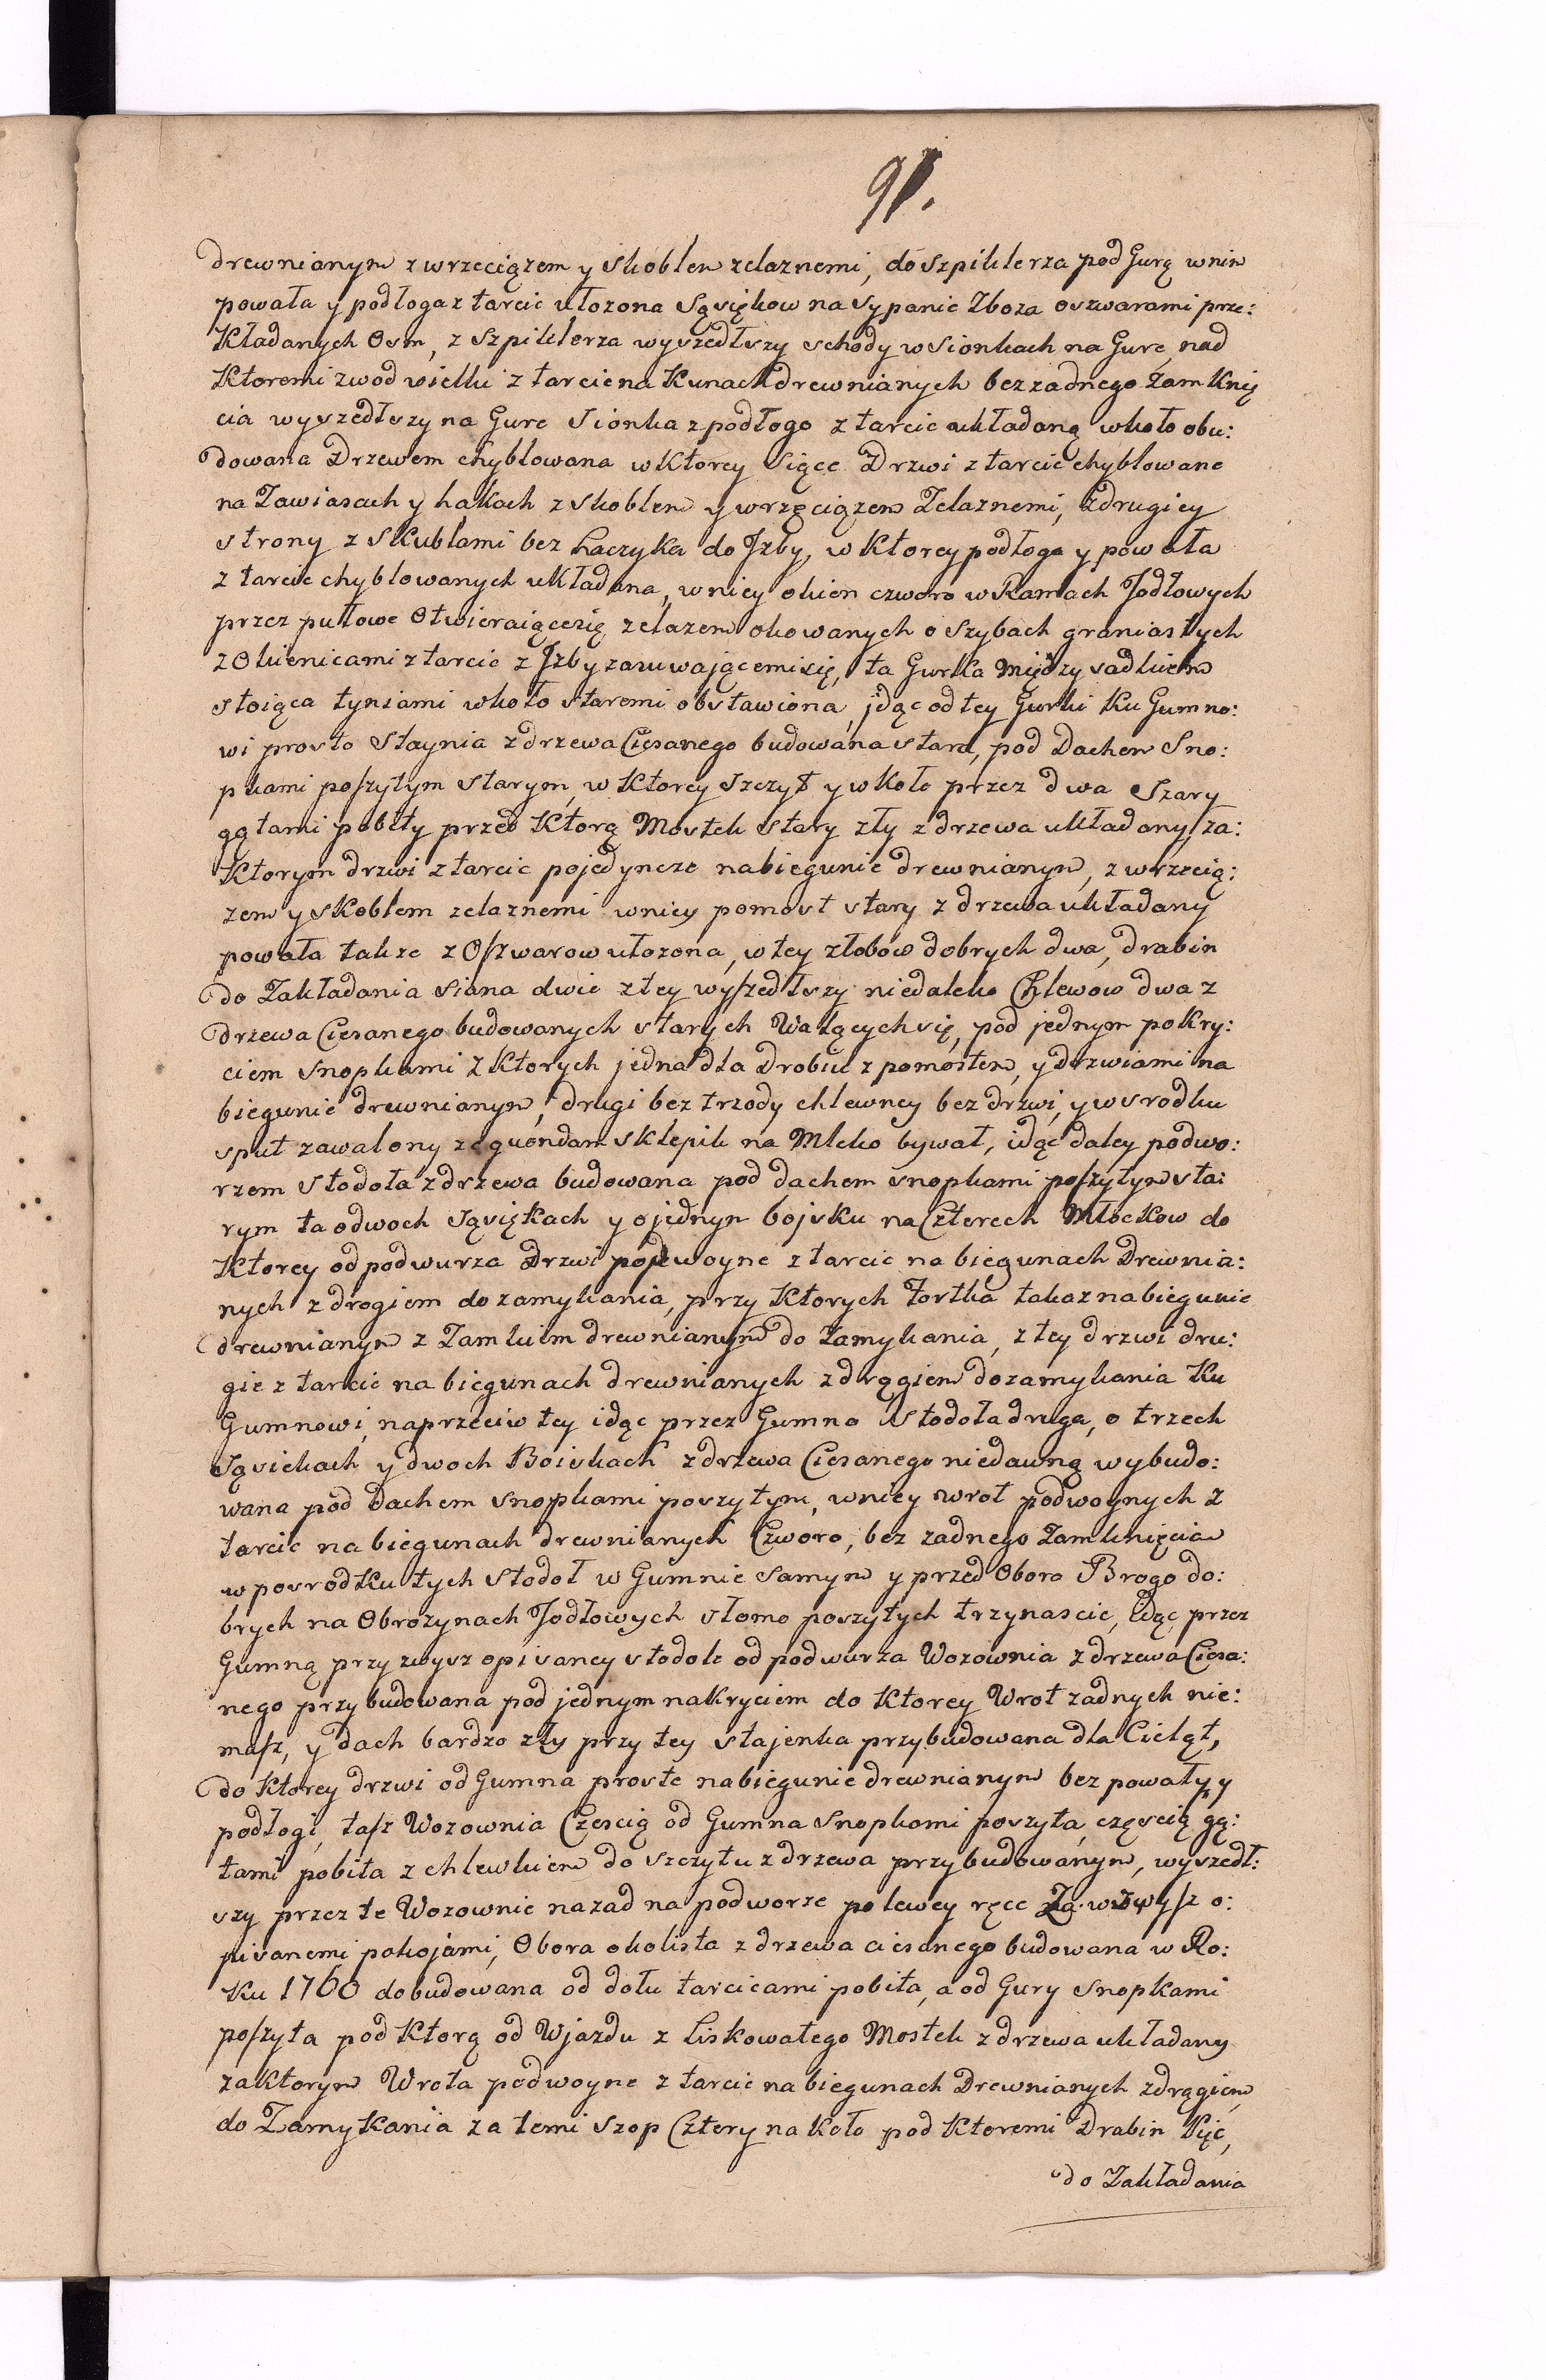 91.
drewnianym z wrzeciązem y skoblem zelaznemi, do szpiklerza pod Gurą w nim
powała y podłoga z tarcic ułozona Sąsiękow na sypanie Zboza oszwarami prze:
kładanych Osm, z szpiklerza wyszedłszy schody w sionkach na Gurę nad
ktoremi zwod wielki z tarcic na kunach drewnianych bez zadnego zamknię
cia wyszedłszy na Gure sionka z podłogo z tarcic układaną w koło obu:
dowana Drzewem chyblowana w ktorey sięce Drzwi z tarcic chyblowane
na Zawiasach y hakach z skoblem y wrzęciązem Zelaznemi, z drugiey
strony z skublami bez haczyka do Jzby, w ktorey podłoga y powała
z tarcic chyblowanych układana, w niey okien czworo w Ramach Jodłowych
przez pułowe Otwieraiącesię zelazem okowanych o szybach graniastych
z Okienicami z tarcic z Jzby zasuwającemisię, ta Gurka między sadkiem
stoiąca tyniami wkoło staremi obstawiona, jdąc od tey Gurki ku Gumno:
wi prosto Staynia z drzewa Ciesanego budowana stara, pod Dachem Sno:
pkami poszytym starym, w ktorey szczyt y w koło przez dwa Szary
gątami pobity przed ktorą Mostek stary zły z drzewa układany, za:
ktorym drzwi z tarcic pojedyncze na biegunie drewnianym, z wrzecią:
zem y skoblem zelaznemi w niey pomost stary z drzewa układany
powała takze z Oszwarow ułozona, w tey złobow dobrych dwa, drabin
do Zakładania siana dwie z tey wyszedłszy niedaleko Chlewow dwa z
drzewa Ciesanego budowanych starych Walącychsię, pod jednym pokry:
ciem snopkami z ktorych jedna dla Drobiu z pomostem, y Drzwiami na
biegunie drewnianym, drugi bez trzody chlewney bez drzwi, y wsrodku
sput zawalony ze quondam sklepik na Mleko bywał, idąc daley podwo:
rzem stodoła z drzewa budowana pod dachem snopkami poszytym sta:
rym ta o dwoch Sąsiękach y o jednym bojsku na Czterech Młockow do
ktorey od podwurza Drzwi podwoyne z tarcic na biegunach Drewnia:
nych z drogiem do zamykania, przy ktorych fortka takaz na biegunie
drewnianym z Zamkiem drewnianym do Zamykania, z tey drzwi dru:
gie z tarcic na biegunach drewnianych z drągiem do zamykania ku
Gumnowi, naprzeciw tey idąc przez Gumno Stodoła druga, o trzech
Sąsiekach y dwoch Boiskach z drzewa Ciesanego niedauną wybudo:
wana pod dachem snopkami poszytym, w niey wrot podwoynych z
tarcic na biegunach drewnianych Czworo, bez zadnego Zamknięcia
w posrodku tych stodoł w Gumnie samym y przed Obora Brogo do:
brych na Obrozynach Jodłowych słomo poszytych trzynascie, Idąc przez
Gumną przy zwysz opisaney stodole od podwurza Wozownia z drzewa Ciesa:
nego przybudowana pod jednym nakryciem do ktorey Wrot zadnych nie:
masz, y dach bardzo zły przy tey stajenka przybudowana dla Cieląt,
do ktorey drzwi od Gumna proste na biegunie drewnianym bez powały, y
podłogi, tasz Wozownia Czescią od Gumna snopkami poszyta, częscią gą:
tami pobita z chlewkiem do szczytu z drzewa przybudowanym, wyszedł:
szy przez te Wozownie nazad na podworze po lewey ręce Za. wzwysz o:
pisanemi pokojami, Obora okolista z drzewa ciesanego budowana w Ro:
ku 1760 dobudowana od dołu tarcicami pobita, a od Gury snopkami
poszyta pod ktorą od Wjazdu z Liskowatego Mostek z drzewa układany
za ktorym Wrota podwoyne z tarcic na biegunach Drewnianych z drągiem
do Zamykania za temi szop Cztery na koło pod ktoremi Drabin Pięc,
do Zakładania